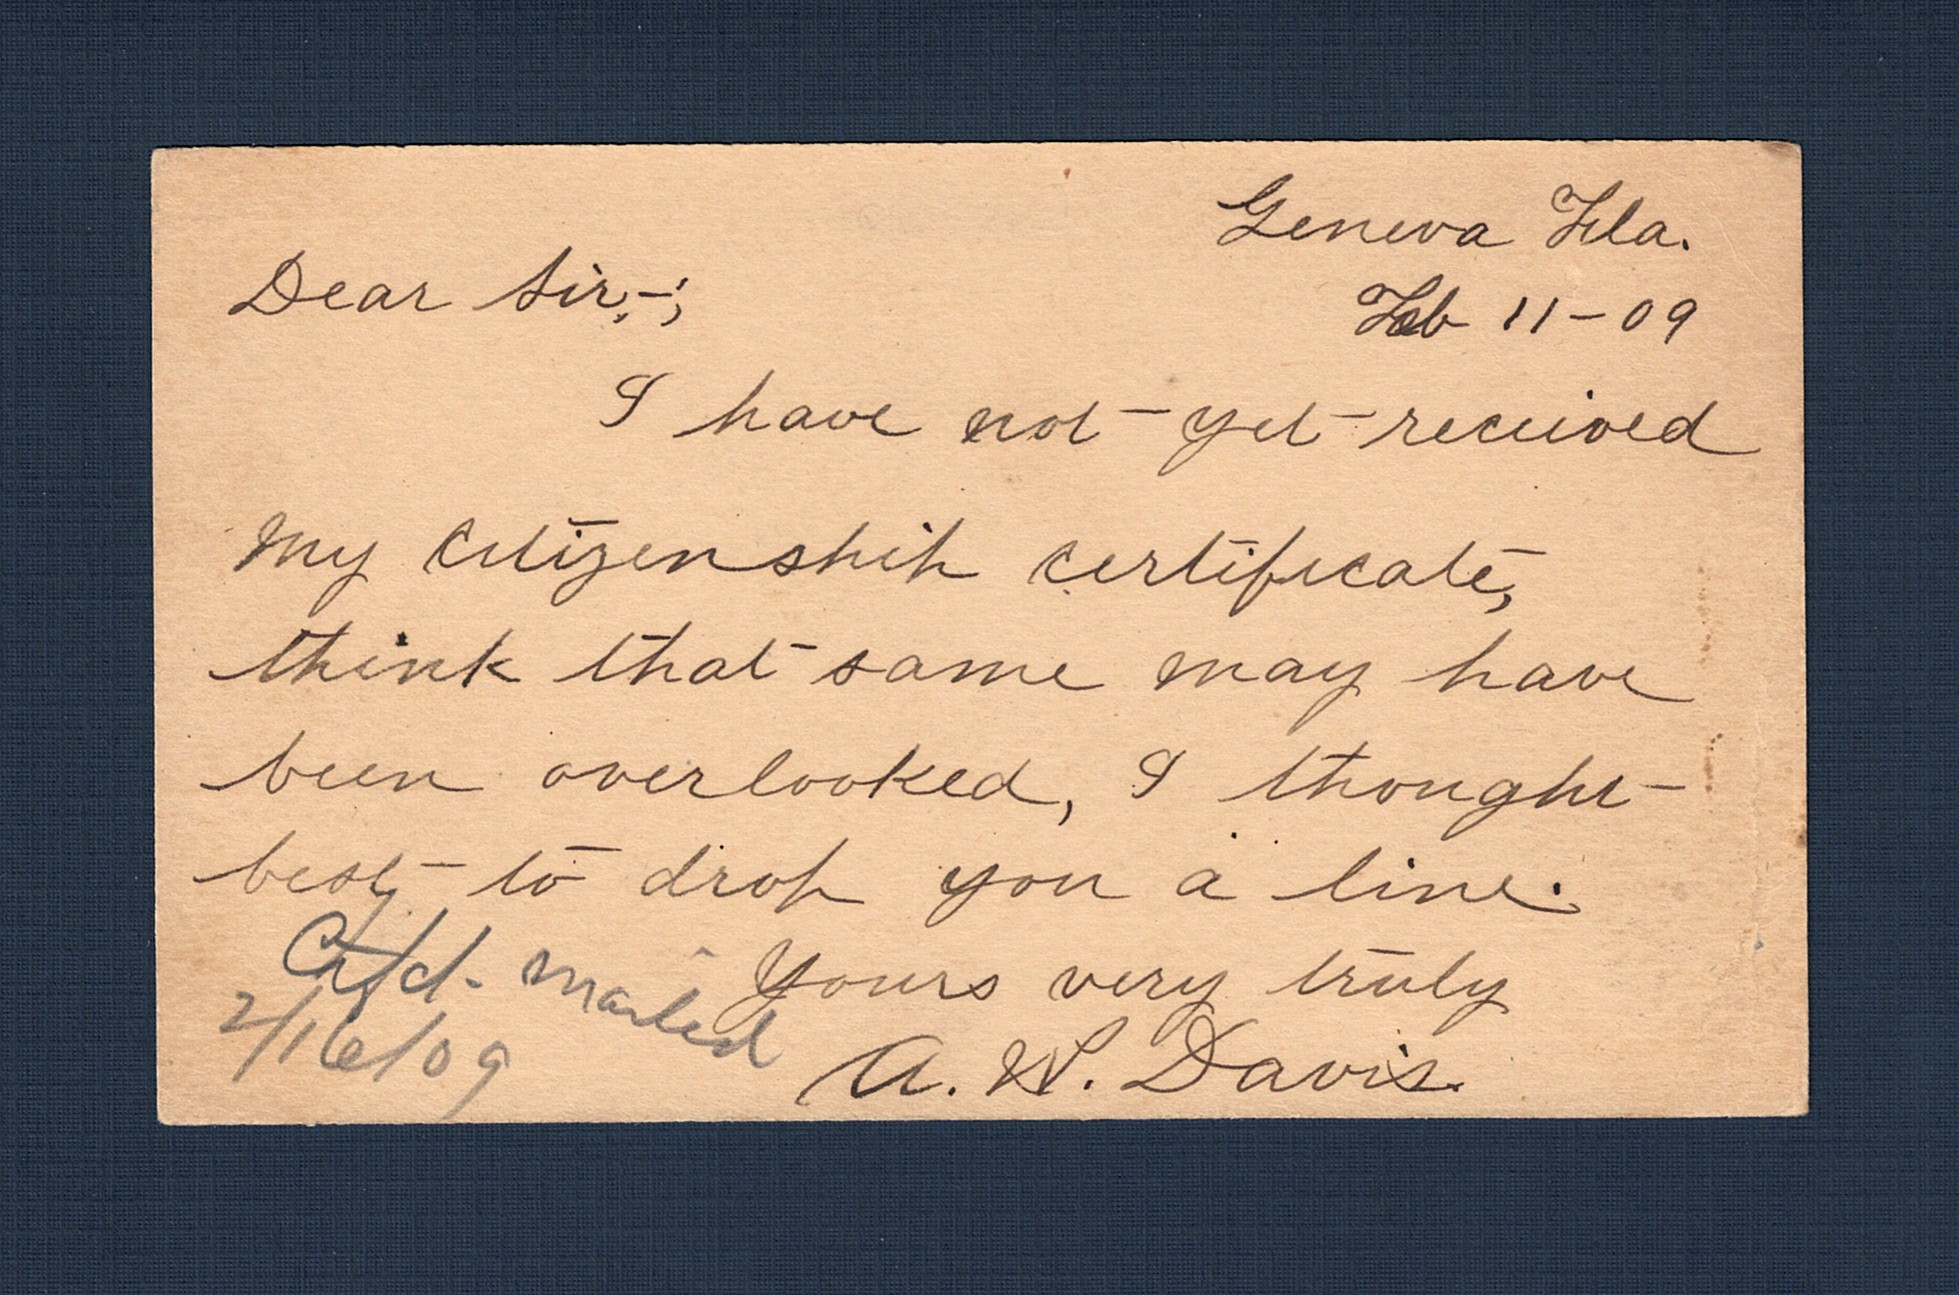 Geneva Fla.
Feb 11-09
Dear Sir,-;
I have not yet received
my citizenship certificate,
think that same may have
been overlooked, I thought
best to drop you a line.
Yours very truly
A. W. Davis.
Ctfd- mailed
2/16/09